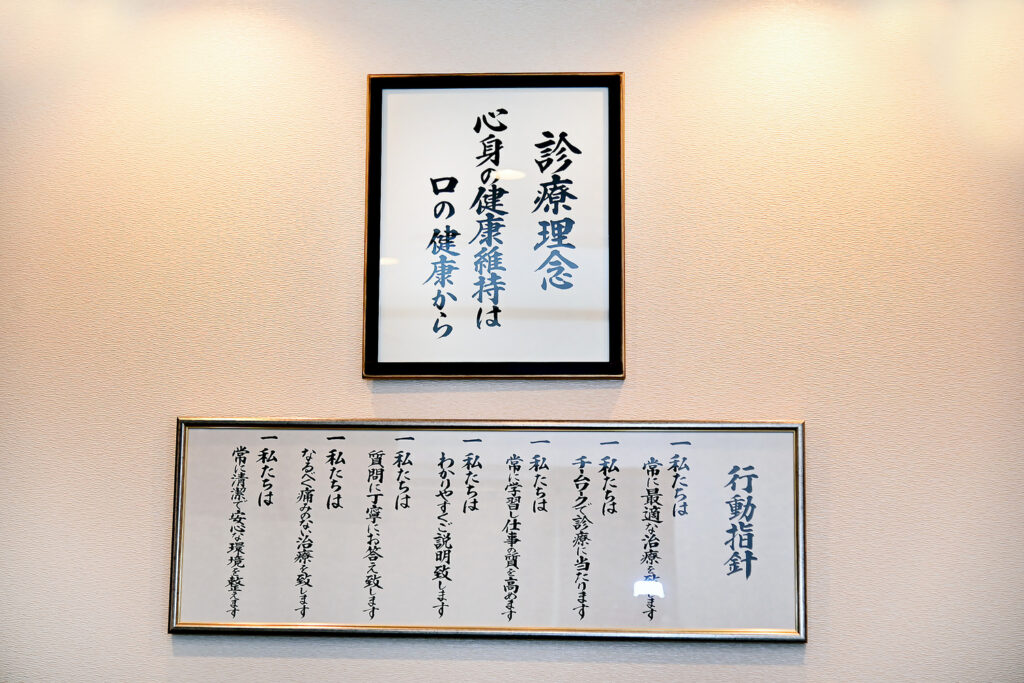 診療理念
心身の健康維持は
口の健康から
行動指針
一 私たちは
常に最適な治療を致します
一 私たちは
チームワークで診療に当たります
一 私たちは
常に学習し仕事の質を高めます
一 私たちは
わかりやすくご説明致します
一 私たちは
質問に丁寧にお答え致します
一 私たちは
なるべく痛みのない治療を致します
一 私たちは
常に清潔で安心な環境を整えます